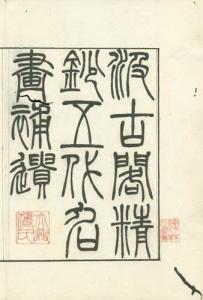 汲古閣精
鈔五代名
畫補遺